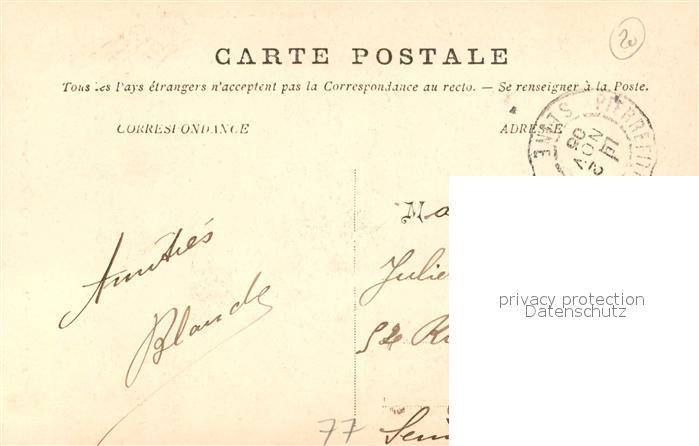 20
CARTE POSTALE
Tous les Pays étrangers n'acceptent pas la Correspondance au recto. — Se renseigner à la Poste.
CORRESPONDANCE
ADRESSE
PIERREFITTE
SEINE
NOV
06
Amitiés
Blande
Ma
Julie
52 R
privacy protection
Datenschutz
77